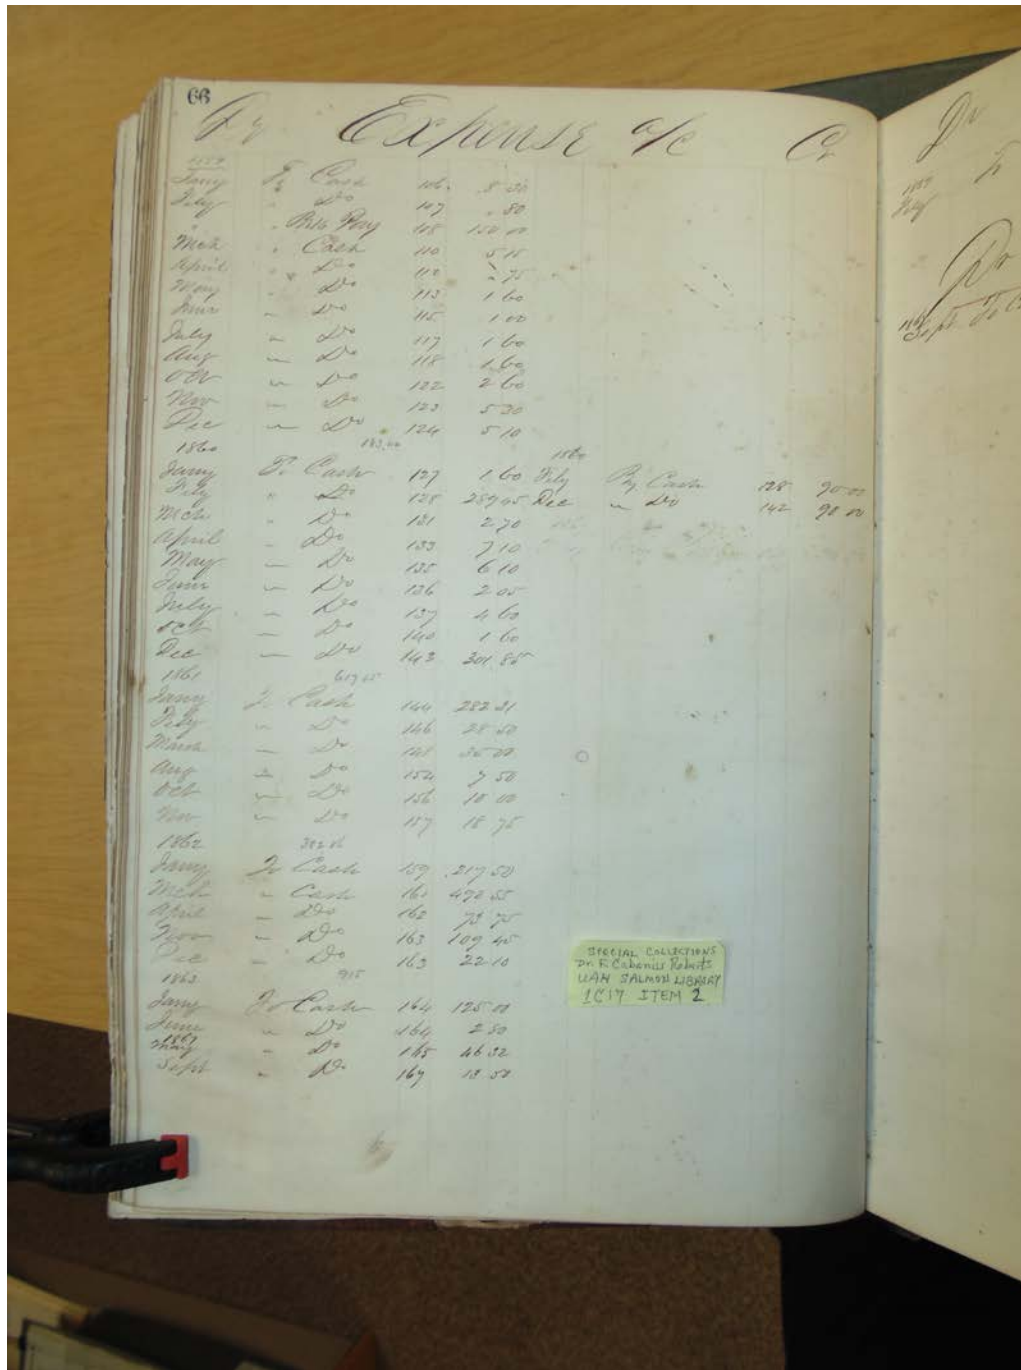 66
Dr Expense a/c Cr
1859
Jany To Cash 106 8 30
Feby " Do 107 .80
" " Bills Pay 108 150 00
Mch " Cash 110 5 15
April " Do 112 .75
May " Do 113 1 60
June " Do 115 1 00
July " Do 117 1 60
Aug " Do 118 1 60
Oct " Do 122 2 60
Nov " Do 123 5 30
Dec " Do 124 5 10
1860 1860
Jany To Cash 127 1 60 Feby By Cash 128 90 00
Feby " Do 128 289 45 Dec " Do 142 90 00
Mch " Do 131 2 70
April " Do 133 7 10
May " Do 135 6 10
June " Do 136 2 05
July " Do 137 4 60
Oct " Do 140 1 60
Dec " Do 143 301 85
1861
Jany To Cash 144 282 31
Feby " Do 146 28 50
March " Do 148 35 00
Aug " Do 154 7 50
Oct " Do 156 10 00
Nov " Do 157 18 75
1862
Jany To Cash 159 217 50
Mch " Cash 161 492 55
April " Do 162 73 75
Nov " Do 163 109 45
Dec " Do 163 22 10
1863 915
Jany To Cash 164 125 00
June " Do 164 2 50
1867
May " Do 165 46 32
Sept " Do 167 13 50
SPECIAL COLLECTIONS
Dr. F. Cabaniss Roberts
UAH SALMON LIBRARY
1C17 ITEM 2
Dr
To
1859
Feby
Dr
Sept To